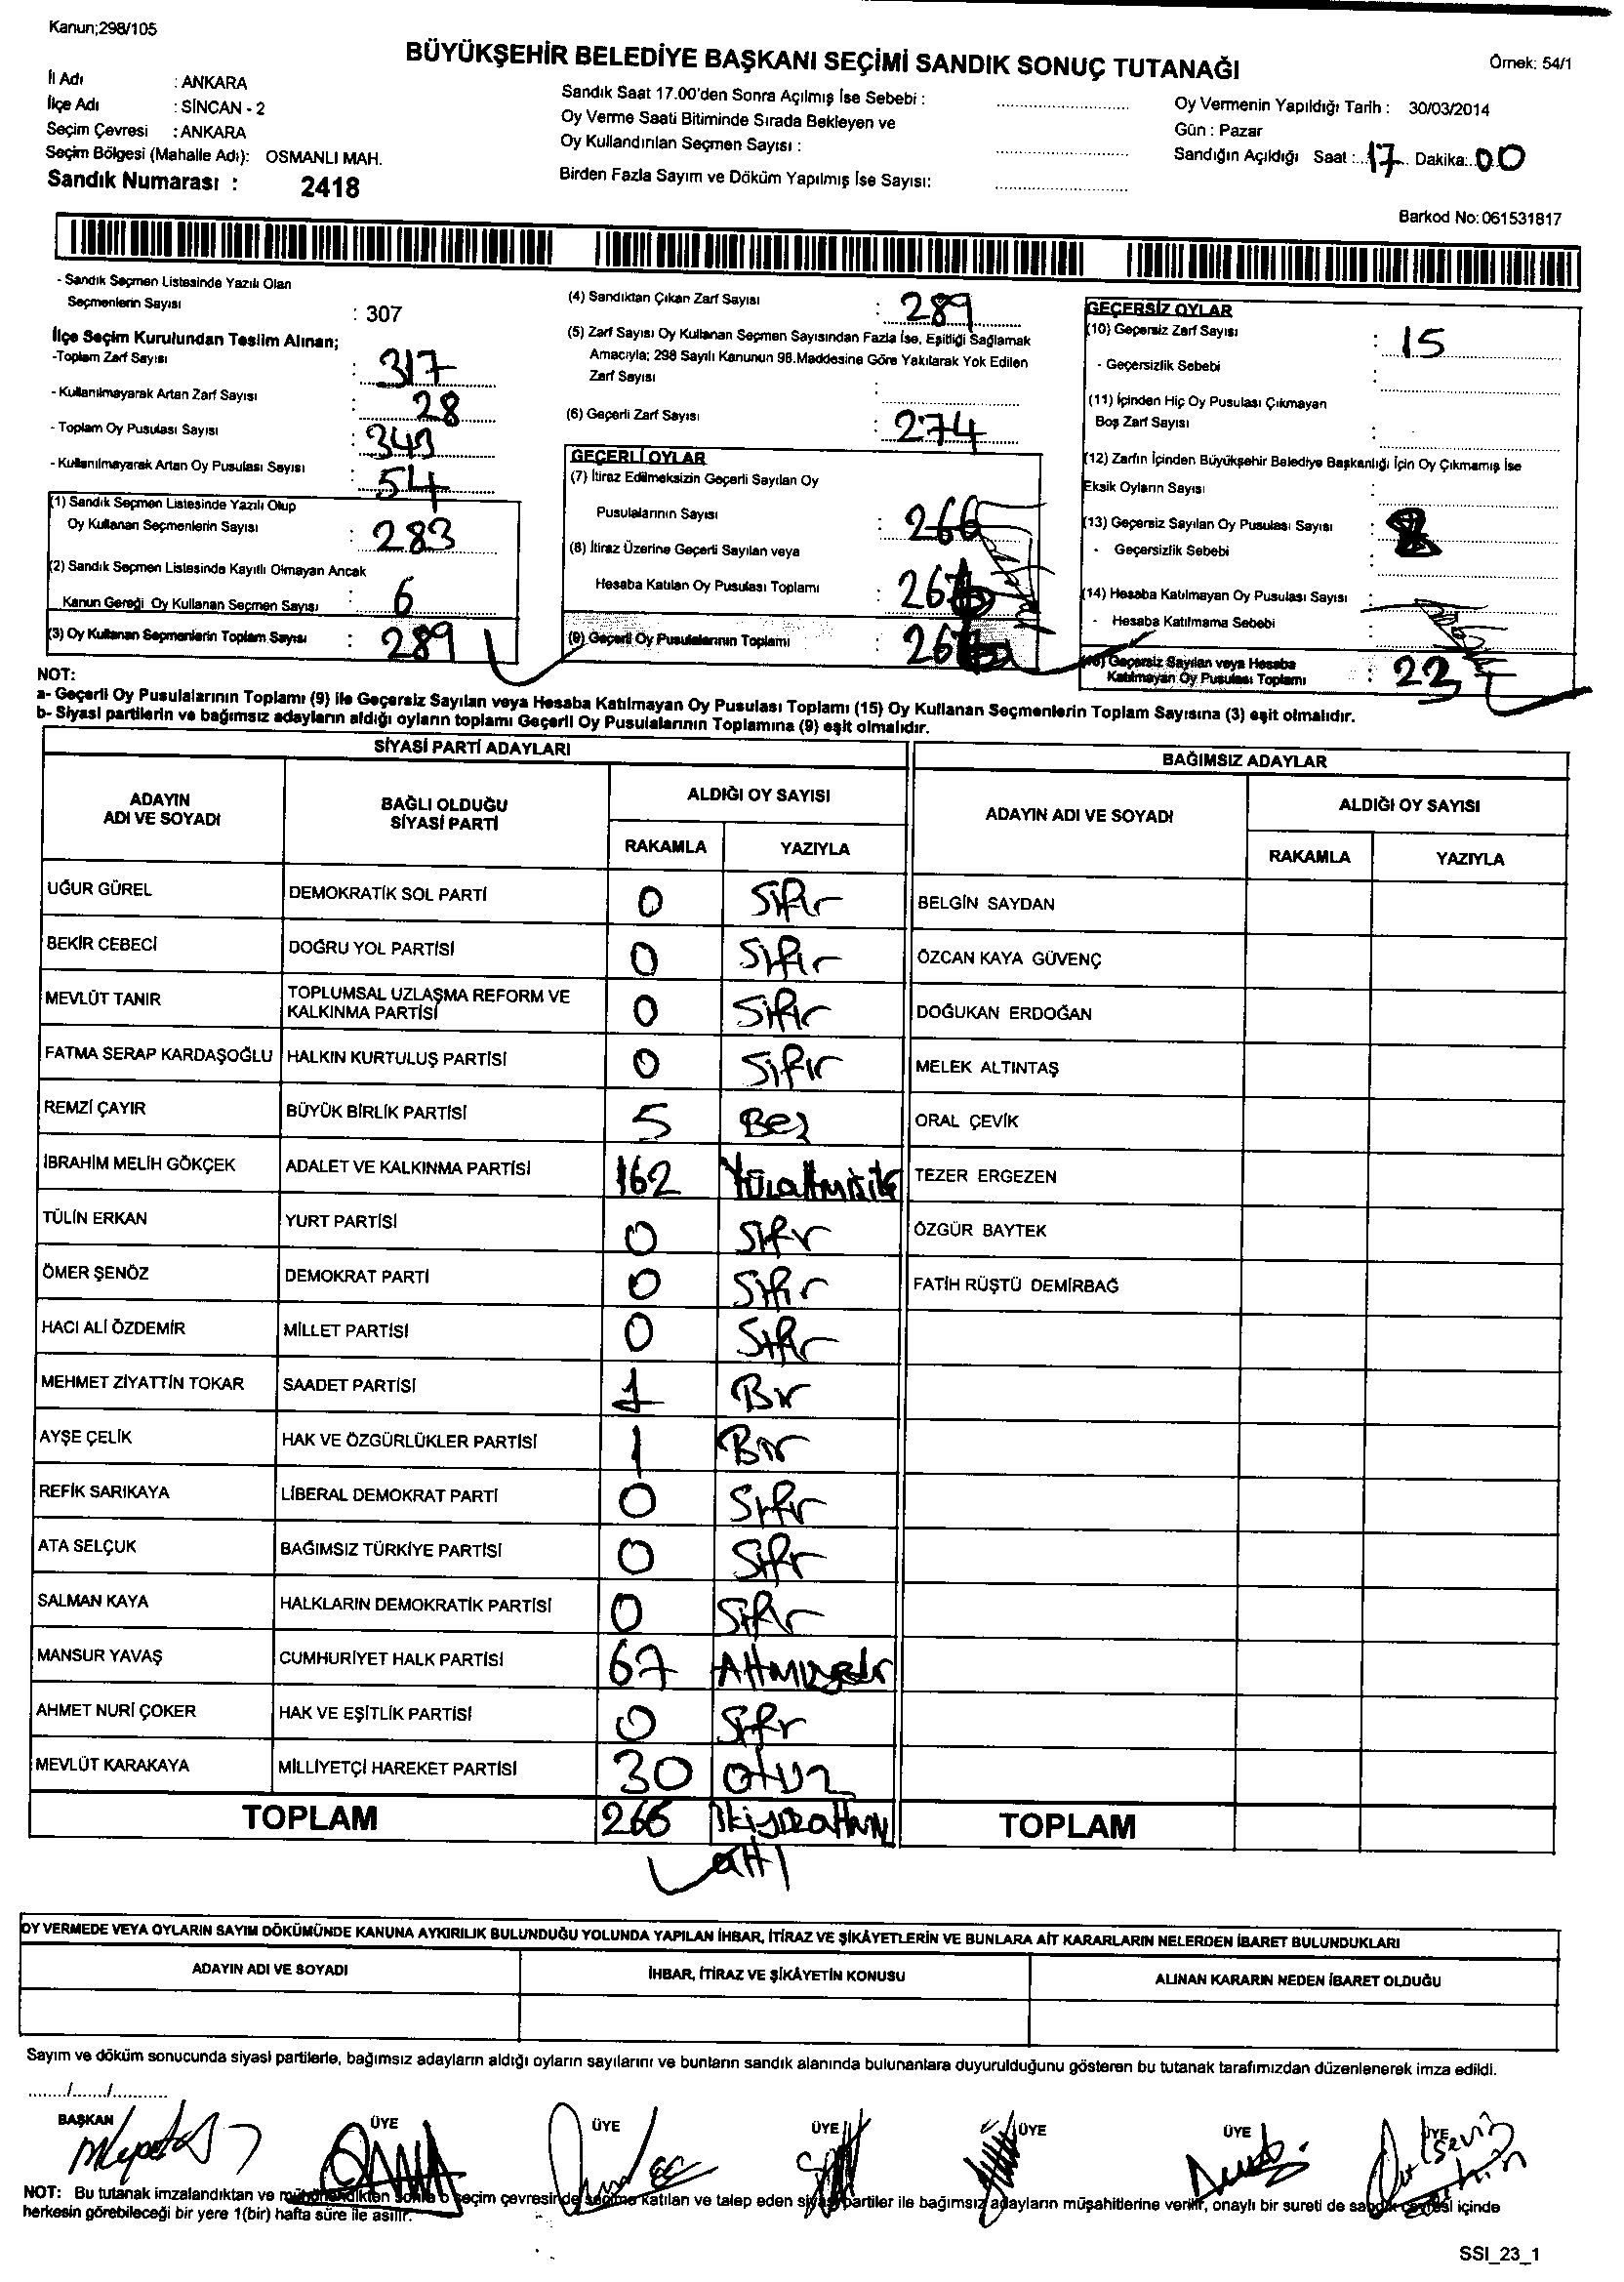 Kanun;298/105
BÜYÜKŞEHİR BELEDİYE BAŞKANI SEÇİMİ SANDIK SONUÇ TUTANAĞI
Örnek: 54/1
İl Adı : ANKARA
İlçe Adı : SİNCAN - 2
Seçim Çevresi : ANKARA
Seçim Bölgesi (Mahalle Adı): OSMANLI MAH.
Sandık Numarası : 2418
Sandık Saat 17.00'den Sonra Açılmış İse Sebebi :
Oy Verme Saati Bitiminde Sırada Bekleyen ve
Oy Kullandırılan Seçmen Sayısı :
Birden Fazla Sayım ve Döküm Yapılmış İse Sayısı:
Oy Vermenin Yapıldığı Tarih : 30/03/2014
Gün : Pazar
Sandığın Açıldığı Saat : 17 Dakika: 00
Barkod No: 061531817
- Sandık Seçmen Listesinde Yazılı Olan
Seçmenlerin Sayısı : 307
İlçe Seçim Kurulundan Teslim Alınan;
-Toplam Zarf Sayısı : 317
- Kullanılmayarak Artan Zarf Sayısı : 28
- Toplam Oy Pusulası Sayısı : 343
- Kullanılmayarak Artan Oy Pusulası Sayısı : 54
(1) Sandık Seçmen Listesinde Yazılı Olup
Oy Kullanan Seçmenlerin Sayısı : 283
(2) Sandık Seçmen Listesinde Kayıtlı Olmayan Ancak
Kanun Gereği Oy Kullanan Seçmen Sayısı : 6
(3) Oy Kullanan Seçmenlerin Toplam Sayısı : 289
(4) Sandıktan Çıkan Zarf Sayısı : 289
(5) Zarf Sayısı Oy Kullanan Seçmen Sayısından Fazla İse, Eşitliği Sağlamak
Amacıyla; 298 Sayılı Kanunun 98.Maddesine Göre Yakılarak Yok Edilen
Zarf Sayısı :
(6) Geçerli Zarf Sayısı : 274
GEÇERLİ OYLAR
(7) İtiraz Edilmeksizin Geçerli Sayılan Oy
Pusulalarının Sayısı : 266
(8) İtiraz Üzerine Geçerli Sayılan veya
Hesaba Katılan Oy Pusulası Toplamı :
(9) Geçerli Oy Pusulalarının Toplamı :
GEÇERSİZ OYLAR
(10) Geçersiz Zarf Sayısı : 15
- Geçersizlik Sebebi :
(11) İçinden Hiç Oy Pusulası Çıkmayan
Boş Zarf Sayısı :
(12) Zarfın İçinden Büyükşehir Belediye Başkanlığı İçin Oy Çıkmamış İse
Eksik Oyların Sayısı :
(13) Geçersiz Sayılan Oy Pusulası Sayısı :
- Geçersizlik Sebebi :
(14) Hesaba Katılmayan Oy Pusulası Sayısı :
- Hesaba Katılmama Sebebi :
(15) Geçersiz Sayılan veya Hesaba
Katılmayan Oy Pusulası Toplamı : 23
NOT:
a- Geçerli Oy Pusulalarının Toplamı (9) ile Geçersiz Sayılan veya Hesaba Katılmayan Oy Pusulası Toplamı (15) Oy Kullanan Seçmenlerin Toplam Sayısına (3) eşit olmalıdır.
b- Siyasi partilerin ve bağımsız adayların aldığı oyların toplamı Geçerli Oy Pusulalarının Toplamına (9) eşit olmalıdır.
SİYASİ PARTİ ADAYLARI BAĞIMSIZ ADAYLAR
ADAYIN ADI VE SOYADI BAĞLI OLDUĞU SİYASİ PARTİ ALDIĞI OY SAYISI ADAYIN ADI VE SOYADI ALDIĞI OY SAYISI
RAKAMLA YAZIYLA RAKAMLA YAZIYLA
UĞUR GÜREL DEMOKRATİK SOL PARTİ 0 Sıfır BELGİN SAYDAN
BEKİR CEBECİ DOĞRU YOL PARTİSİ 0 Sıfır ÖZCAN KAYA GÜVENÇ
MEVLÜT TANIR TOPLUMSAL UZLAŞMA REFORM VE KALKINMA PARTİSİ 0 Sıfır DOĞUKAN ERDOĞAN
FATMA SERAP KARDAŞOĞLU HALKIN KURTULUŞ PARTİSİ 0 Sıfır MELEK ALTINTAŞ
REMZİ ÇAYIR BÜYÜK BİRLİK PARTİSİ 5 Beş ORAL ÇEVİK
İBRAHİM MELİH GÖKÇEK ADALET VE KALKINMA PARTİSİ 162 Yüzaltmışiki TEZER ERGEZEN
TÜLİN ERKAN YURT PARTİSİ 0 Sıfır ÖZGÜR BAYTEK
ÖMER ŞENÖZ DEMOKRAT PARTİ 0 Sıfır FATİH RÜŞTÜ DEMİRBAĞ
HACI ALİ ÖZDEMİR MİLLET PARTİSİ 0 Sıfır
MEHMET ZİYATTİN TOKAR SAADET PARTİSİ 1 Bir
AYŞE ÇELİK HAK VE ÖZGÜRLÜKLER PARTİSİ 1 Bir
REFİK SARIKAYA LİBERAL DEMOKRAT PARTİ 0 Sıfır
ATA SELÇUK BAĞIMSIZ TÜRKİYE PARTİSİ 0 Sıfır
SALMAN KAYA HALKLARIN DEMOKRATİK PARTİSİ 0 Sıfır
MANSUR YAVAŞ CUMHURİYET HALK PARTİSİ 67 Altmışyedi
AHMET NURİ ÇOKER HAK VE EŞİTLİK PARTİSİ 0 Sıfır
MEVLÜT KARAKAYA MİLLİYETÇİ HAREKET PARTİSİ 30 Otuz
TOPLAM 266 İkiyüzaltmış TOPLAM
altı
OY VERMEDE VEYA OYLARIN SAYIM DÖKÜMÜNDE KANUNA AYKIRILIK BULUNDUĞU YOLUNDA YAPILAN İHBAR, İTİRAZ VE ŞİKÂYETLERİN VE BUNLARA AİT KARARLARIN NELERDEN İBARET BULUNDUKLARI
ADAYIN ADI VE SOYADI İHBAR, İTİRAZ VE ŞİKÂYETİN KONUSU ALINAN KARARIN NEDEN İBARET OLDUĞU
Sayım ve döküm sonucunda siyasi partilerle, bağımsız adayların aldığı oyların sayılarını ve bunların sandık alanında bulunanlara duyurulduğunu gösteren bu tutanak tarafımızdan düzenlenerek imza edildi.
......../......./...........
BAŞKAN ÜYE ÜYE ÜYE ÜYE ÜYE ÜYE
NOT: Bu tutanak imzalandıktan ve mühürlendikten sonra o seçim çevresinde seçime katılan ve talep eden siyasi partiler ile bağımsız adayların müşahitlerine verilir, onaylı bir sureti de sandık çevresi içinde
herkesin görebileceği bir yere 1(bir) hafta süre ile asılır.
SSI_23_1